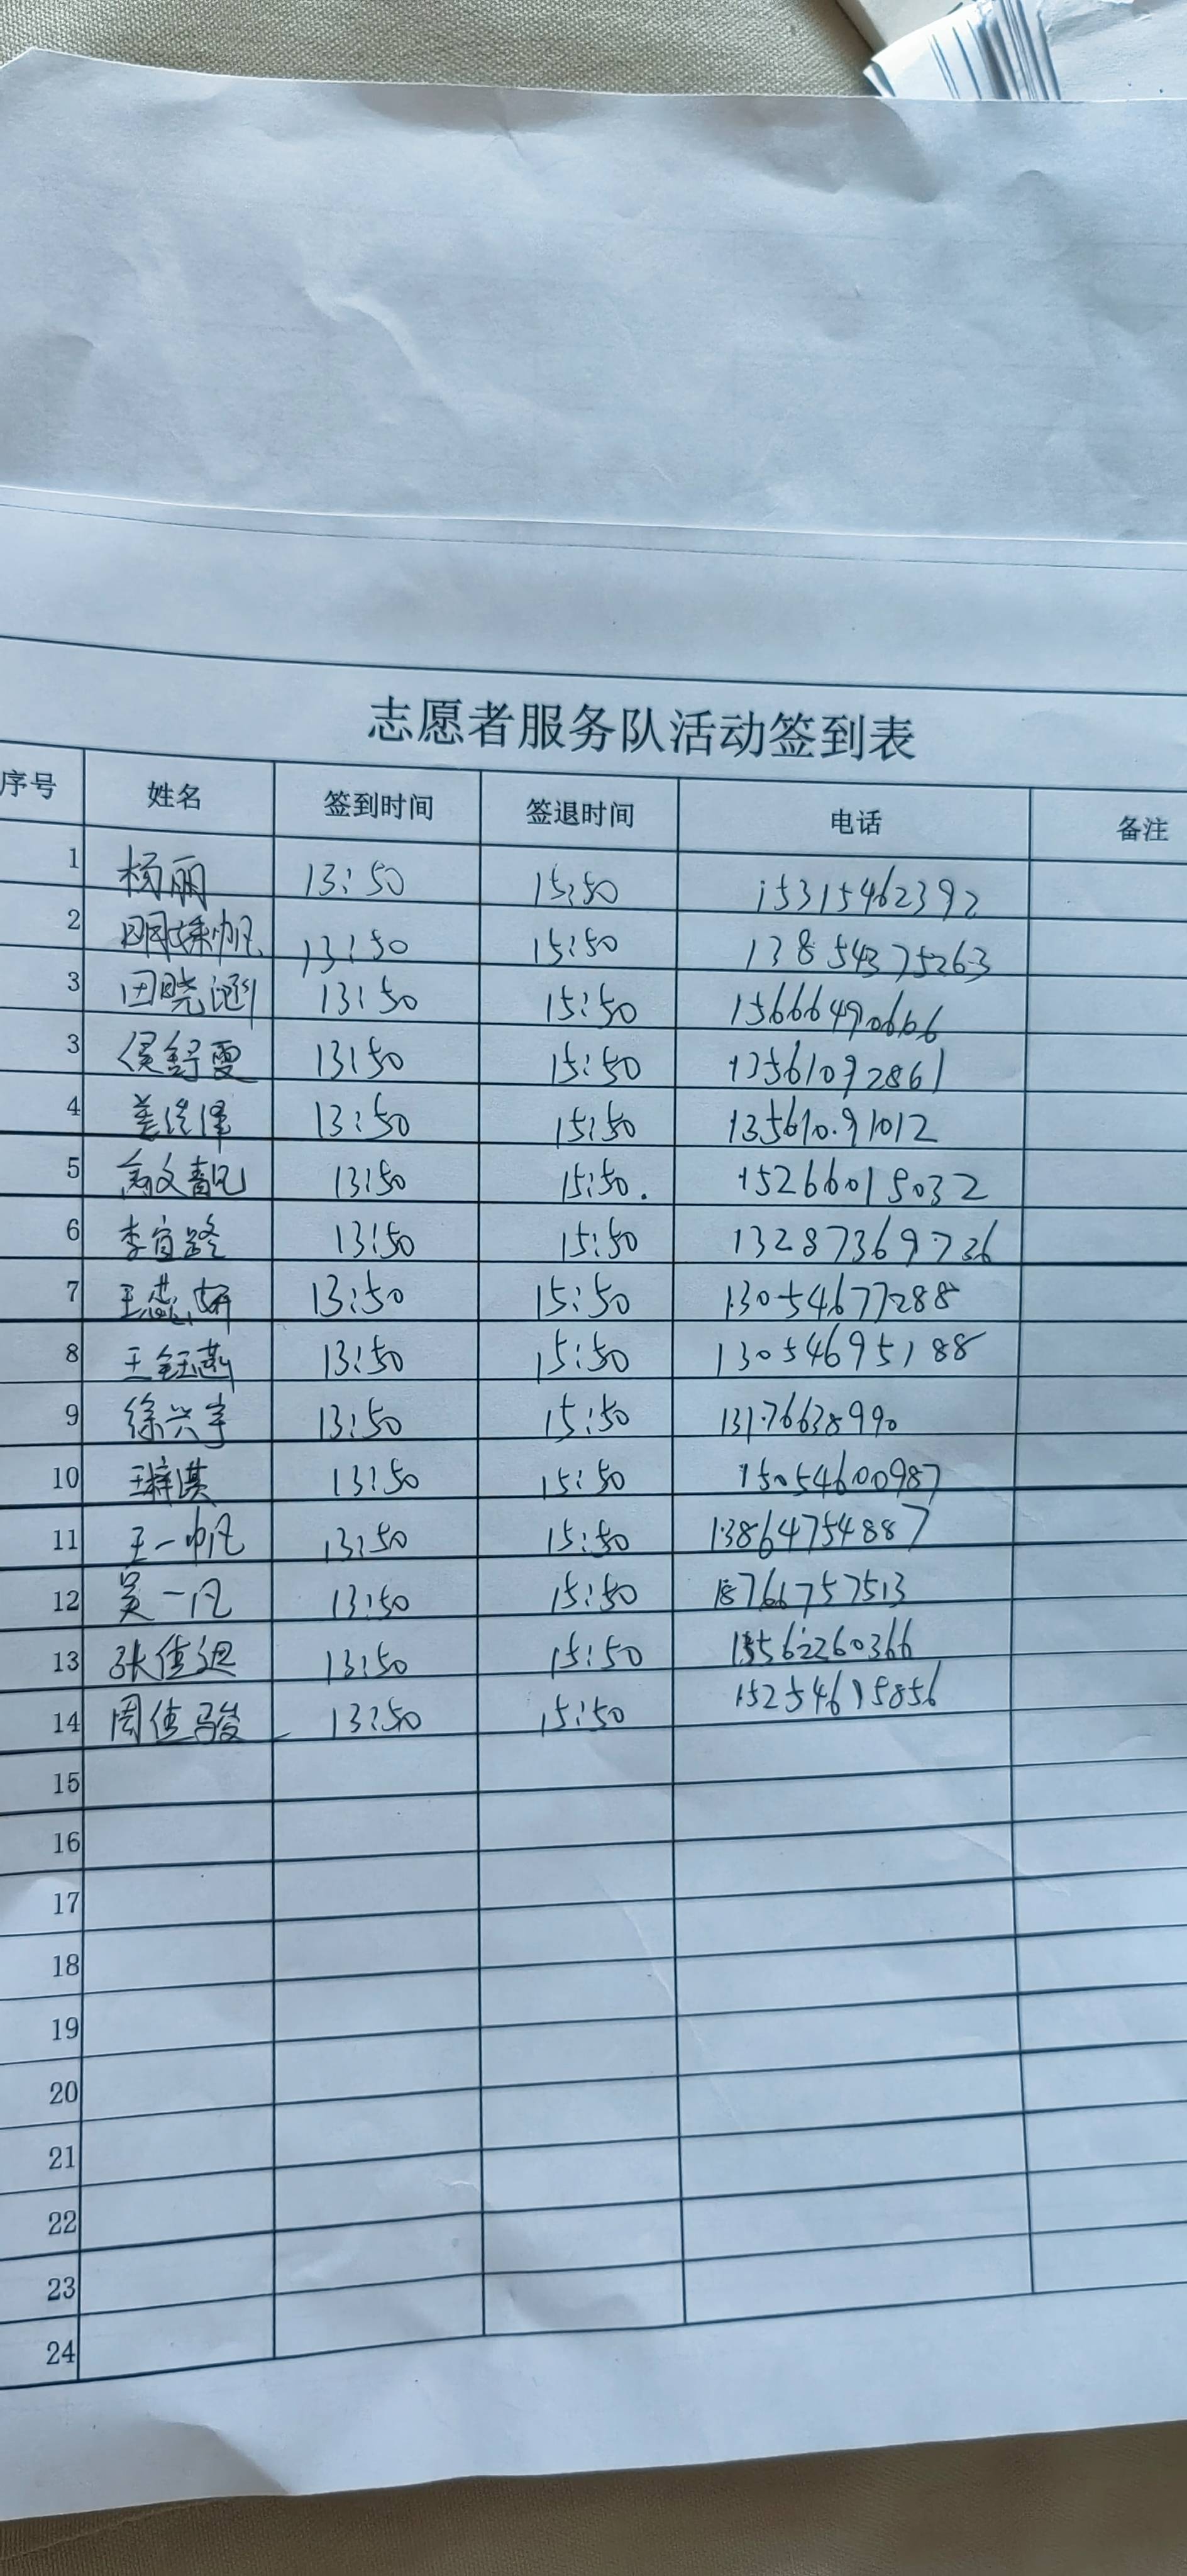 志愿者服务队活动签到表
序号 姓名 签到时间 签退时间 电话 备注
1 杨丽 13:50 15:50 15315462392
2 13:50 15:50 13854375263
3 田晓涵 13:50 15:50 15666490666
3 侯舒雯 13:50 15:50 13561092861
4 13:50 15:50 13561091012
5 13:50 15:50. 15266015032
6 李宜璐 13:50 15:50 13287369736
7 王蕊妍 13:50 15:50 13054677288
8 王钰涵 13:50 15:50 13054695188
9 徐兴宇 13:50 15:50 13176638990
10 王梓淇 13:50 15:50 15054600987
11 王一帆 13:50 15:50 13864754887
12 吴一凡 13:50 15:50 18766757513
13 13:50 15:50 15562260366
14 周佳骏 13:50 15:50 15254615856
15
16
17
18
19
20
21
22
23
24